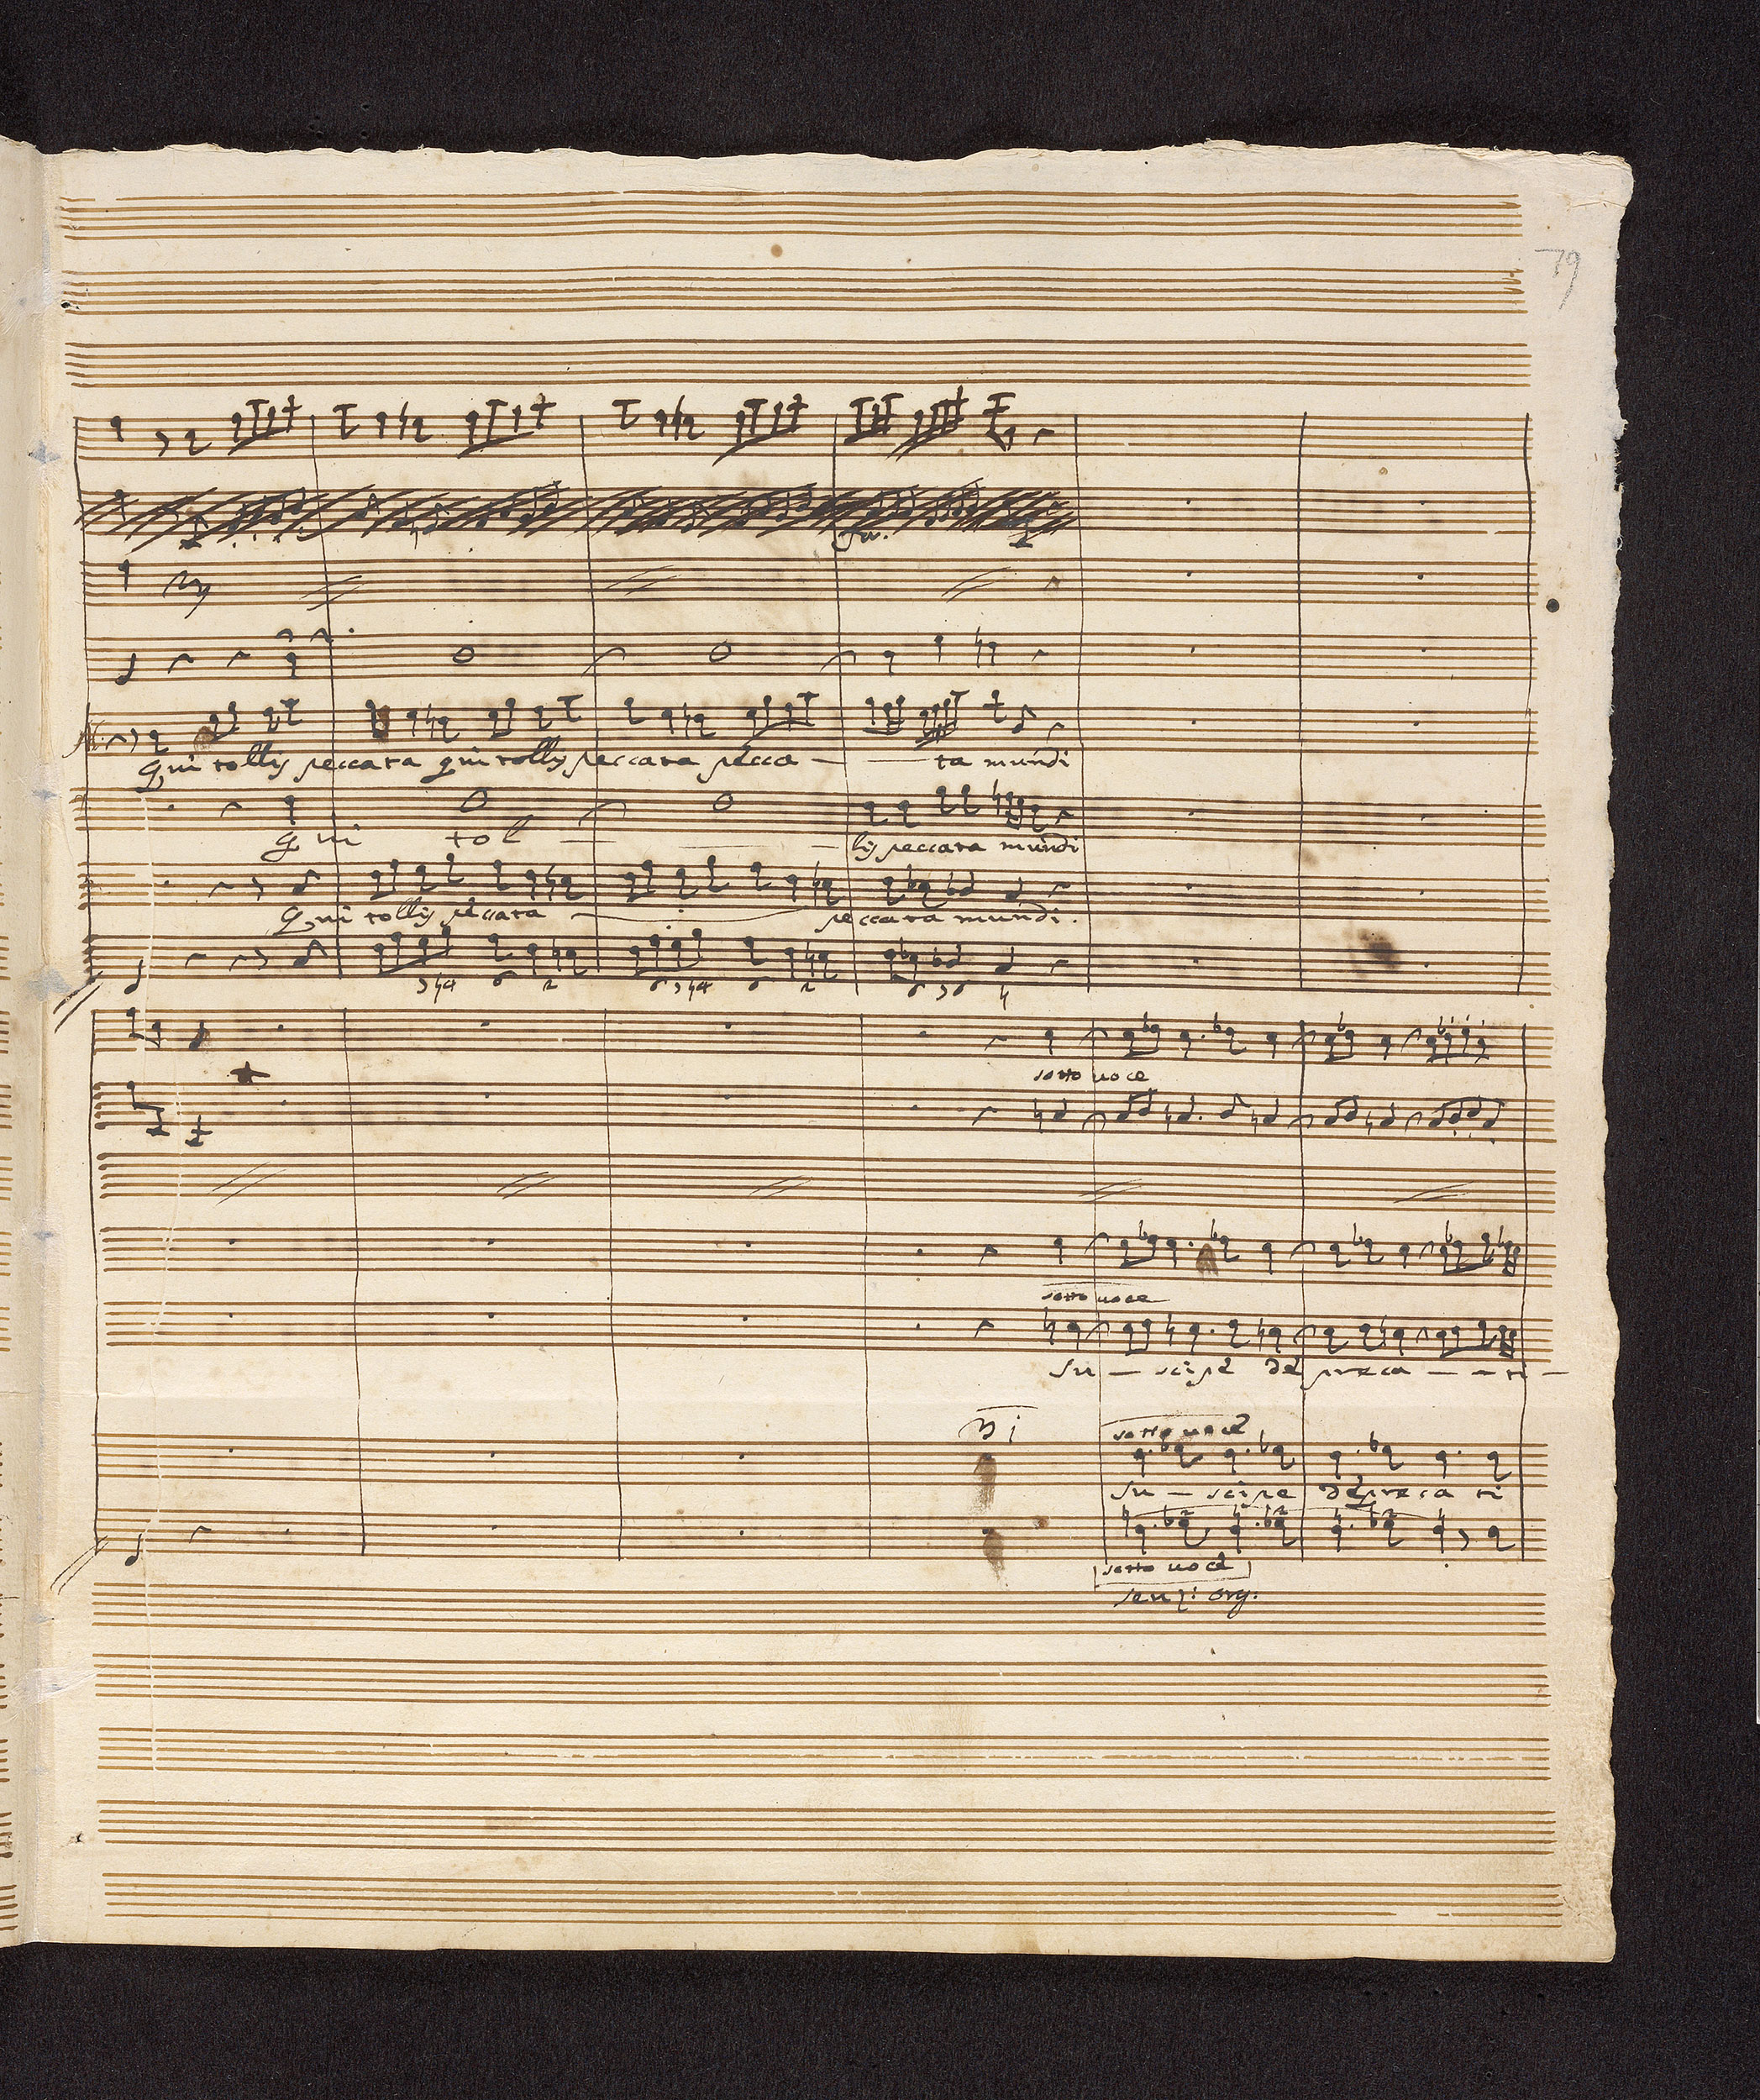 79
qui tollis peccata qui tollis peccata pecca - - ta mundi
qui tol - - - lis peccata mundi
qui tollis peccata - - peccata mundi.
3 4 6 2 6 3 4 6 2 6 3 6
sotto voce
sotto voce
Su - scipe de preca - - ti -
sotto voce
Su - scipe depreca ti
sotto voce
senz: org.